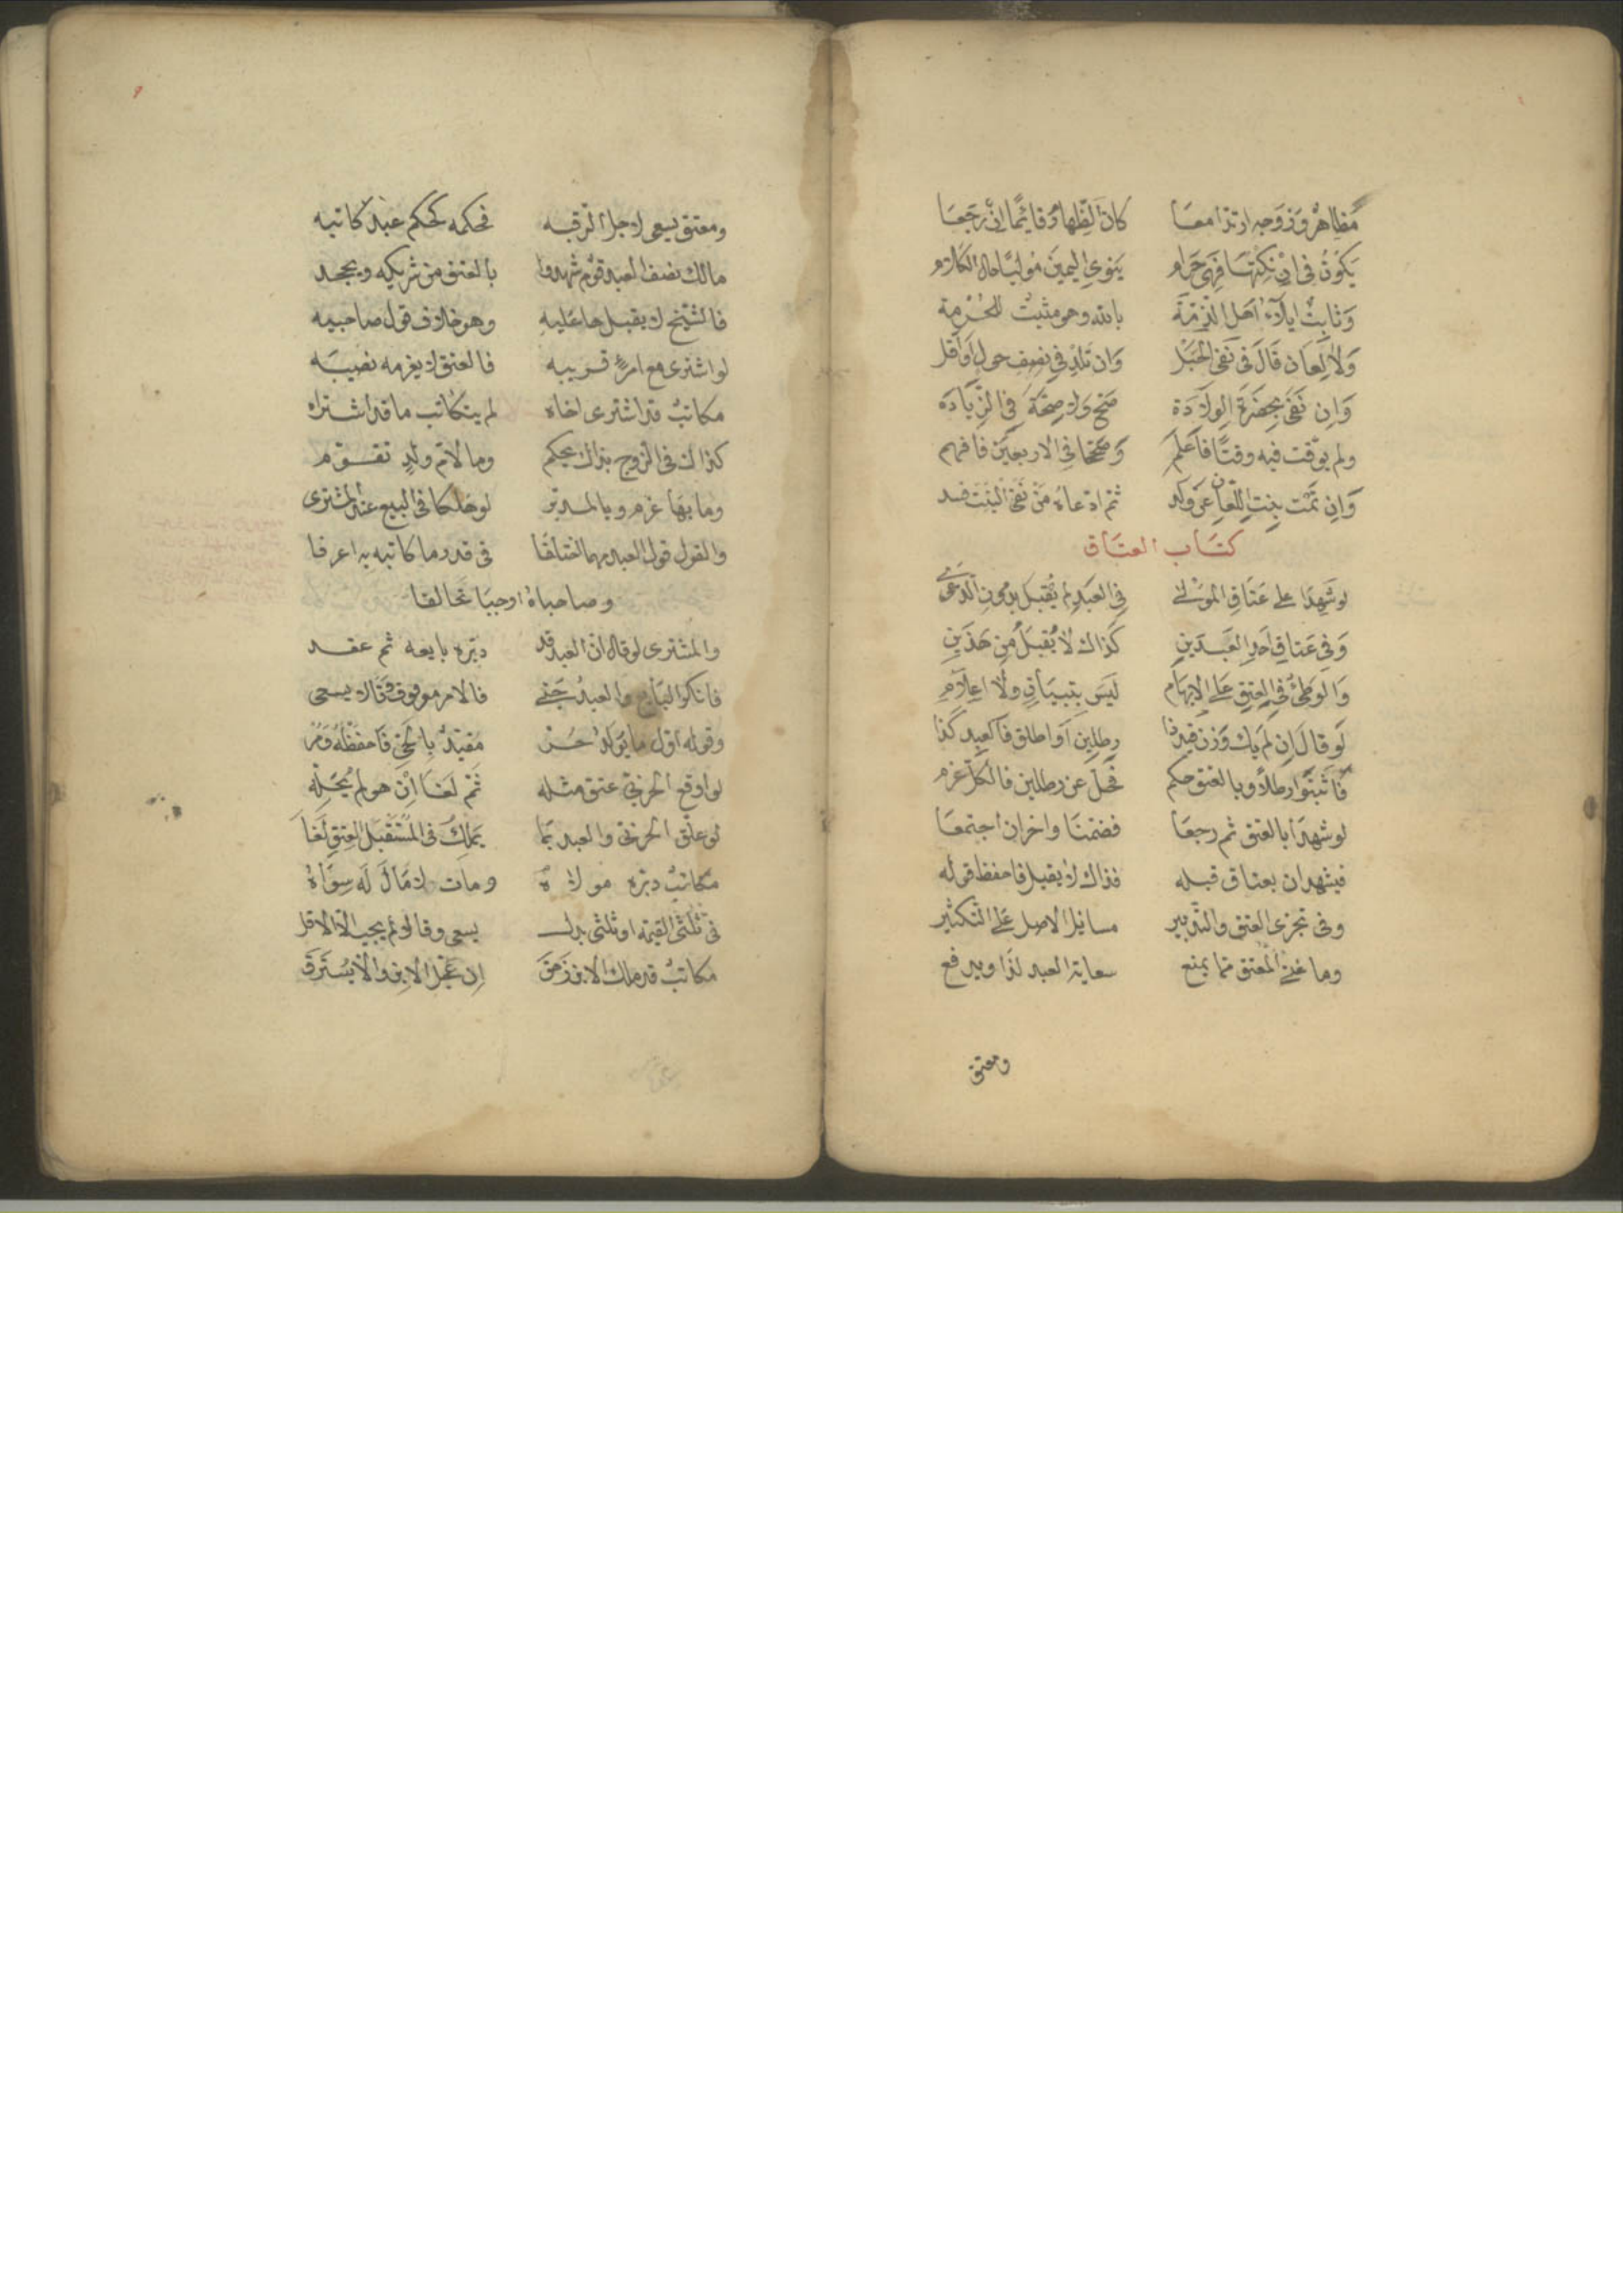 مظاهر وزوجه ارتدا معا كان الظهار قائما ان رجعا
يكون في ان نكحتها فهي حرام ينوي اليمين موليا حال الكلام
وثابت ايلاء اهل الذمة بالله وهو مثبت للحرمة
ولا لعان قال في نفي الحبل وان تلد في نصف حول او اقل
وان نفى بحضرة الولادة صح ولا صحة في الزيادة
ولم يوقت فيه وقتا فاعلم وصححا في الاربعين فافهم
وان تمت بنت اللعان عن ولد ثم ادعاه من نفى البنت فسد
كتاب العتاق
لو شهدا على عتاق المولى في العبد لم يقبل بدون الدعوى
وفي عتاق احد العبدين كذاك لا يقبل من هذين
والوطئ في العتق على الابهام ليس بتبيان ولا اعلام
لو قال ان لم يك وزن قيد ذا رطلين او اطلق فالعبد كذا
فاثبتوا رطلا وبالعتق حكم فحل عن رطلين فالكل غرم
لو شهدا بالعتق ثم رجعا فضمنا واخران اجتمعا
فيشهدان بعتاق قبله فذاك لا يقبل فاحفظ قوله
وفي تجزي العتق والتدبير مسايل الاصل على التكثير
وما غنى المعتق مما يمنع سعاية العبد لذا ويدفع
ومعتق
ومعتق يسعى لاجل الرقبه فحكمه كحكم عبد كاتبه
مالك نصف العبد قوم شهدوا بالعتق من شريكه ويجحد
فالشيخ لا يقبل ها عليه وهو خلاف قول صاحبيه
لو اشترى مع امرئ قريبه فالعتق لا يغرمه نصيبه
مكاتب قد اشترى اخاه لم يتكاتب ما قد اشتراه
كذاك في الزوج بذاك يحكم وما لام ولد تقوم
وما بها غرم وبالمدبر لو هلكا في البيع عند المشتري
والقول قول العبد مهما اختلفا في قدر ما كاتبه به اعرفا
وصاحباه اوجبا تحالفا
والمشتري لو قال ان العبد قد دبره بايعه ثم عقد
فانكر البايع والعبد جنى فالامر موقوف وقالا يسعى
وقوله اول ما يولد حر مقيد بالحي فاحفظه ومر
لو اوقع الحربي عتق مثله ثم لغا ان هو لم يخله
لو علق الحربي والعبد بما يملك في المستقبل العتق لغا
مكاتب دبره مولاه ومات لا مال له سواه
في ثلثي القيمة او ثلثي بدل يسعى وقالا لم يجب الا الاقل
مكاتب قد ملك الابن زمن ان عجل الابن والا يسترق